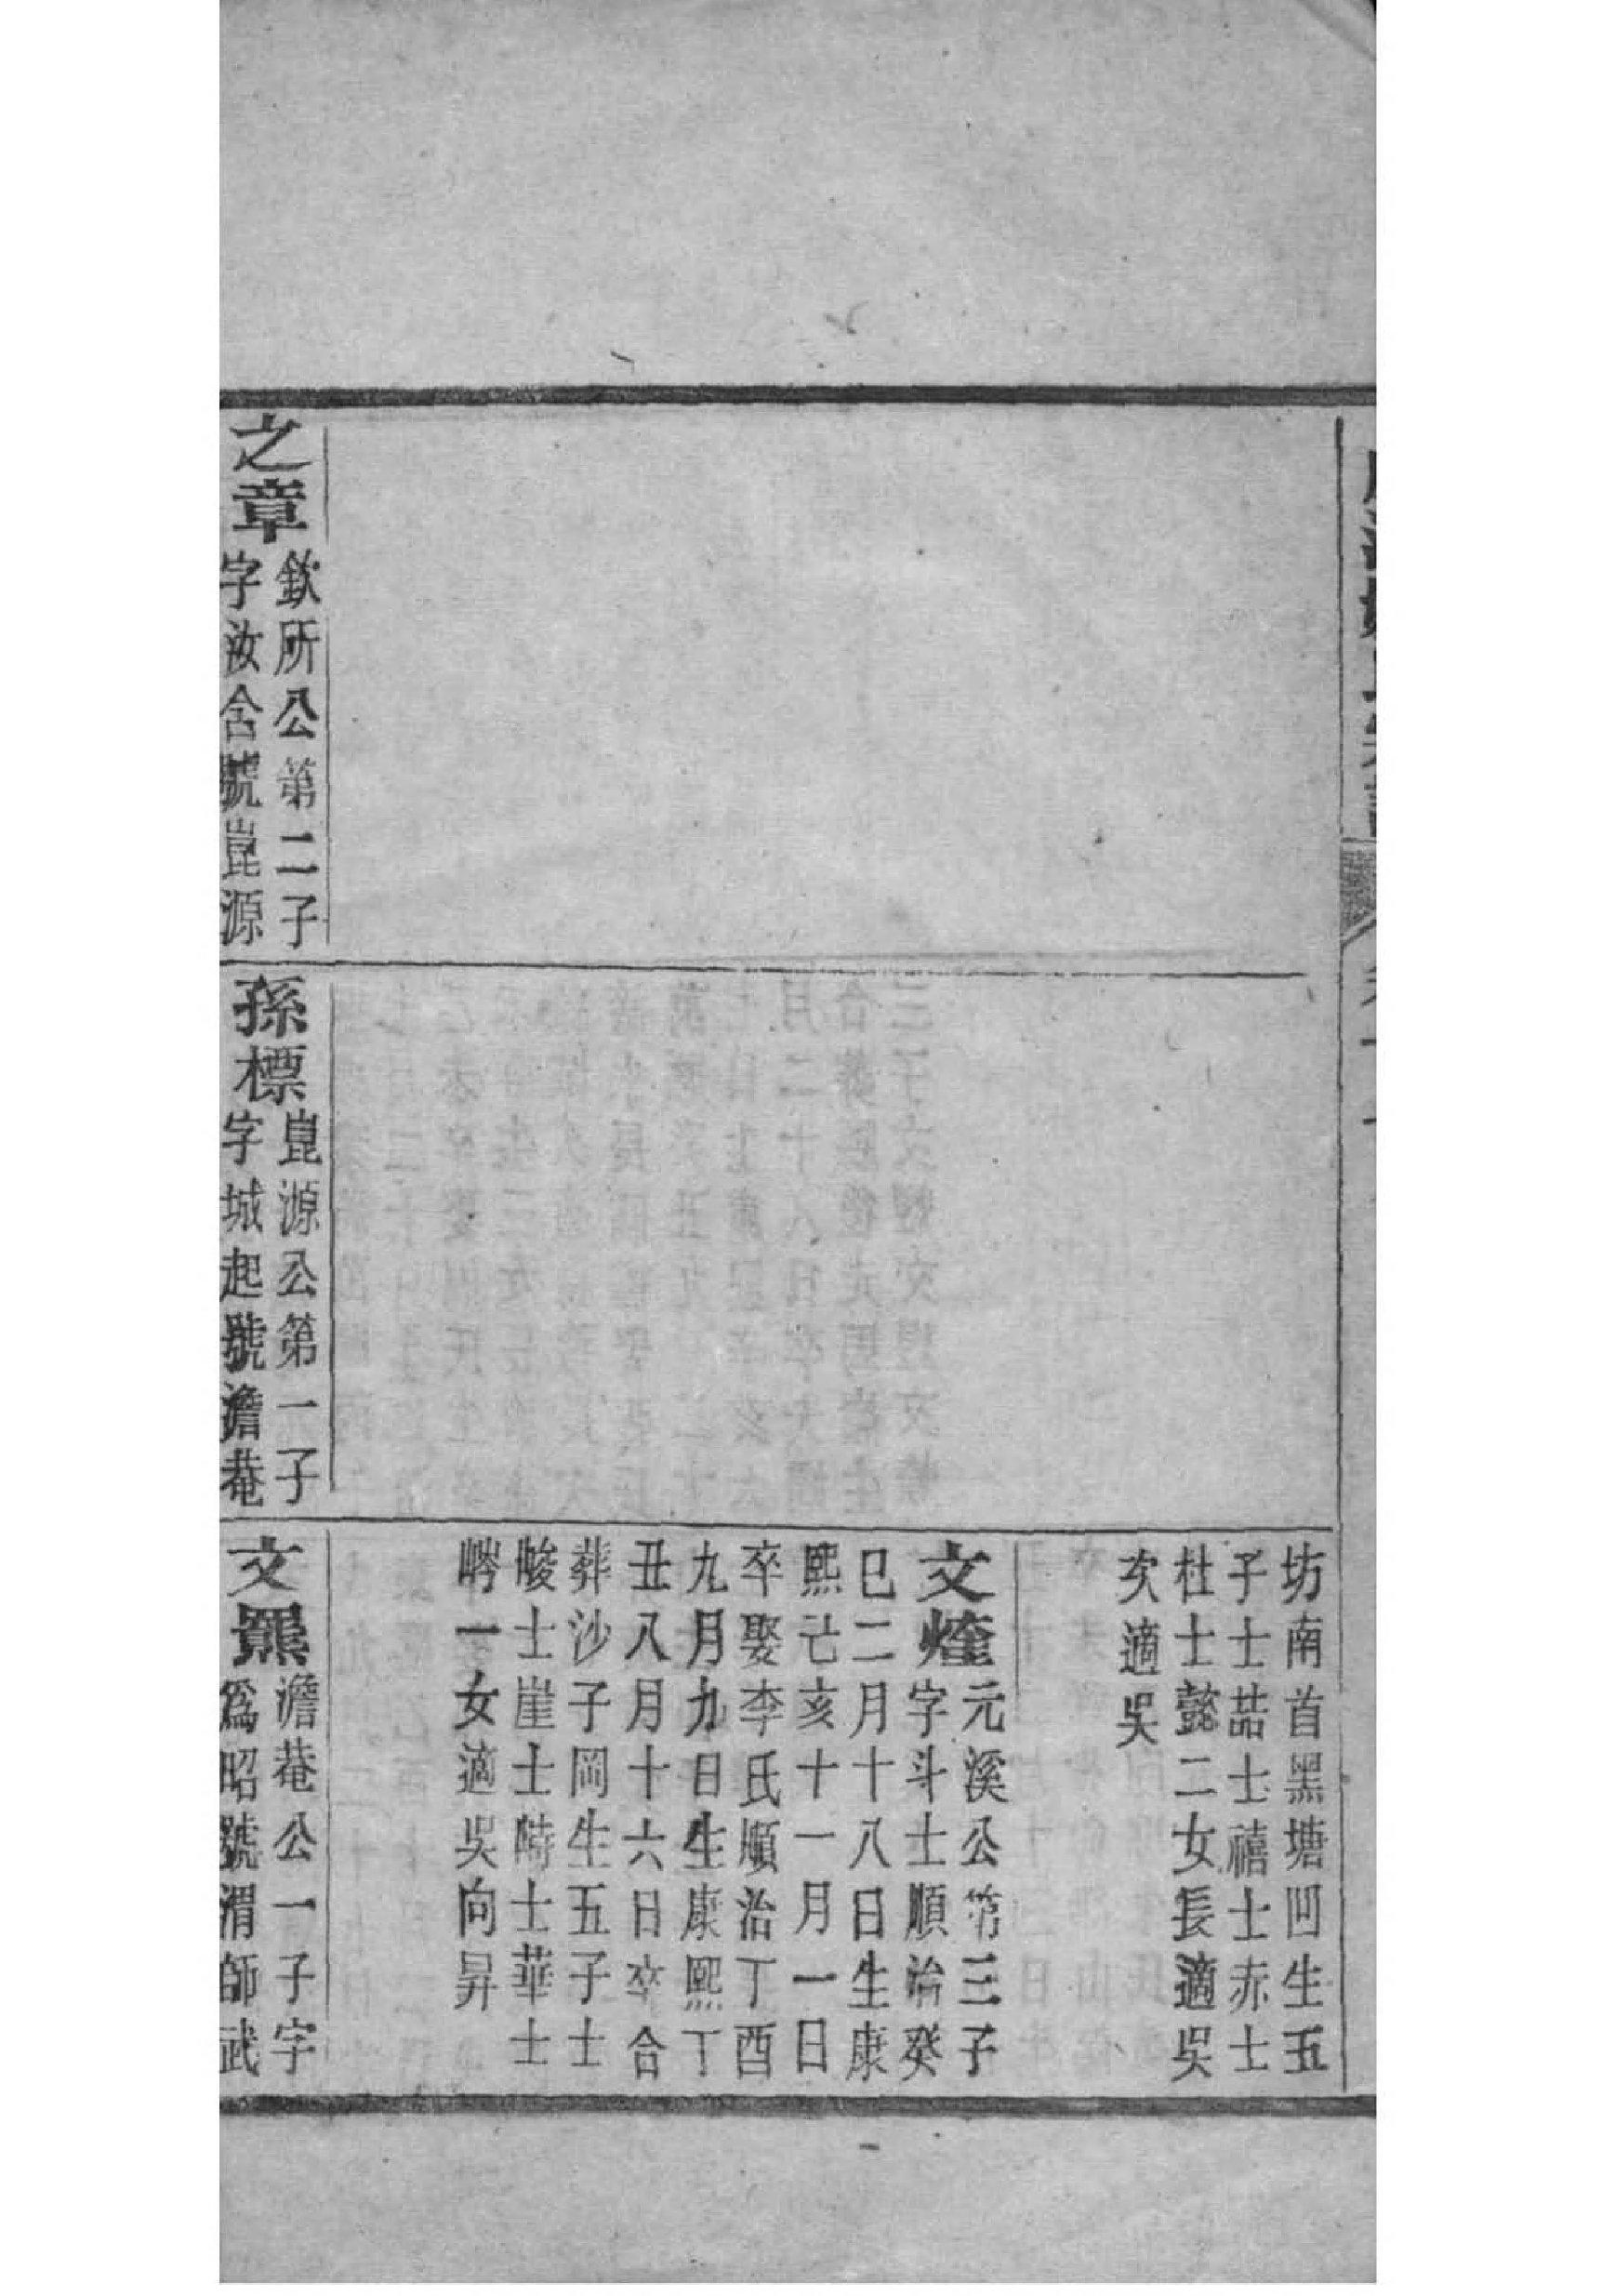 之章
欽所公第二子
字汝含號崑源
孫標
崑源公第一子
字城起號澹菴
坊南首黑塘凹生五
子士喆士禧士赤士
杜士懿二女長適吳
次適吳
文燁
元溪公第三子
字斗士順治癸
巳二月十八日生康
熙亡亥十一月一日
卒娶李氏順治丁酉
九月九日生康熙丁
丑八月十六日卒合
葬沙子岡生五子士
畯士崖士士華士
一女適吳向昇
文羆
澹菴公一子字
為昭號渭師武